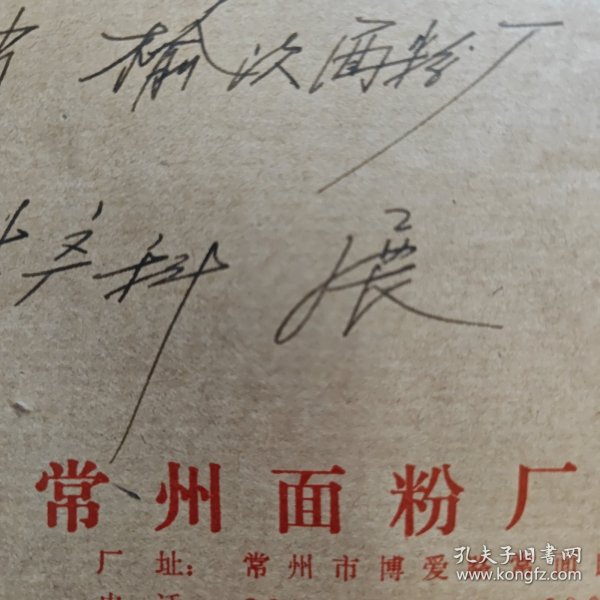 榆次面粉厂
科 展
常州面粉厂
厂址：常州市博爱
电话
孔夫子旧书网
www.kongfz.com